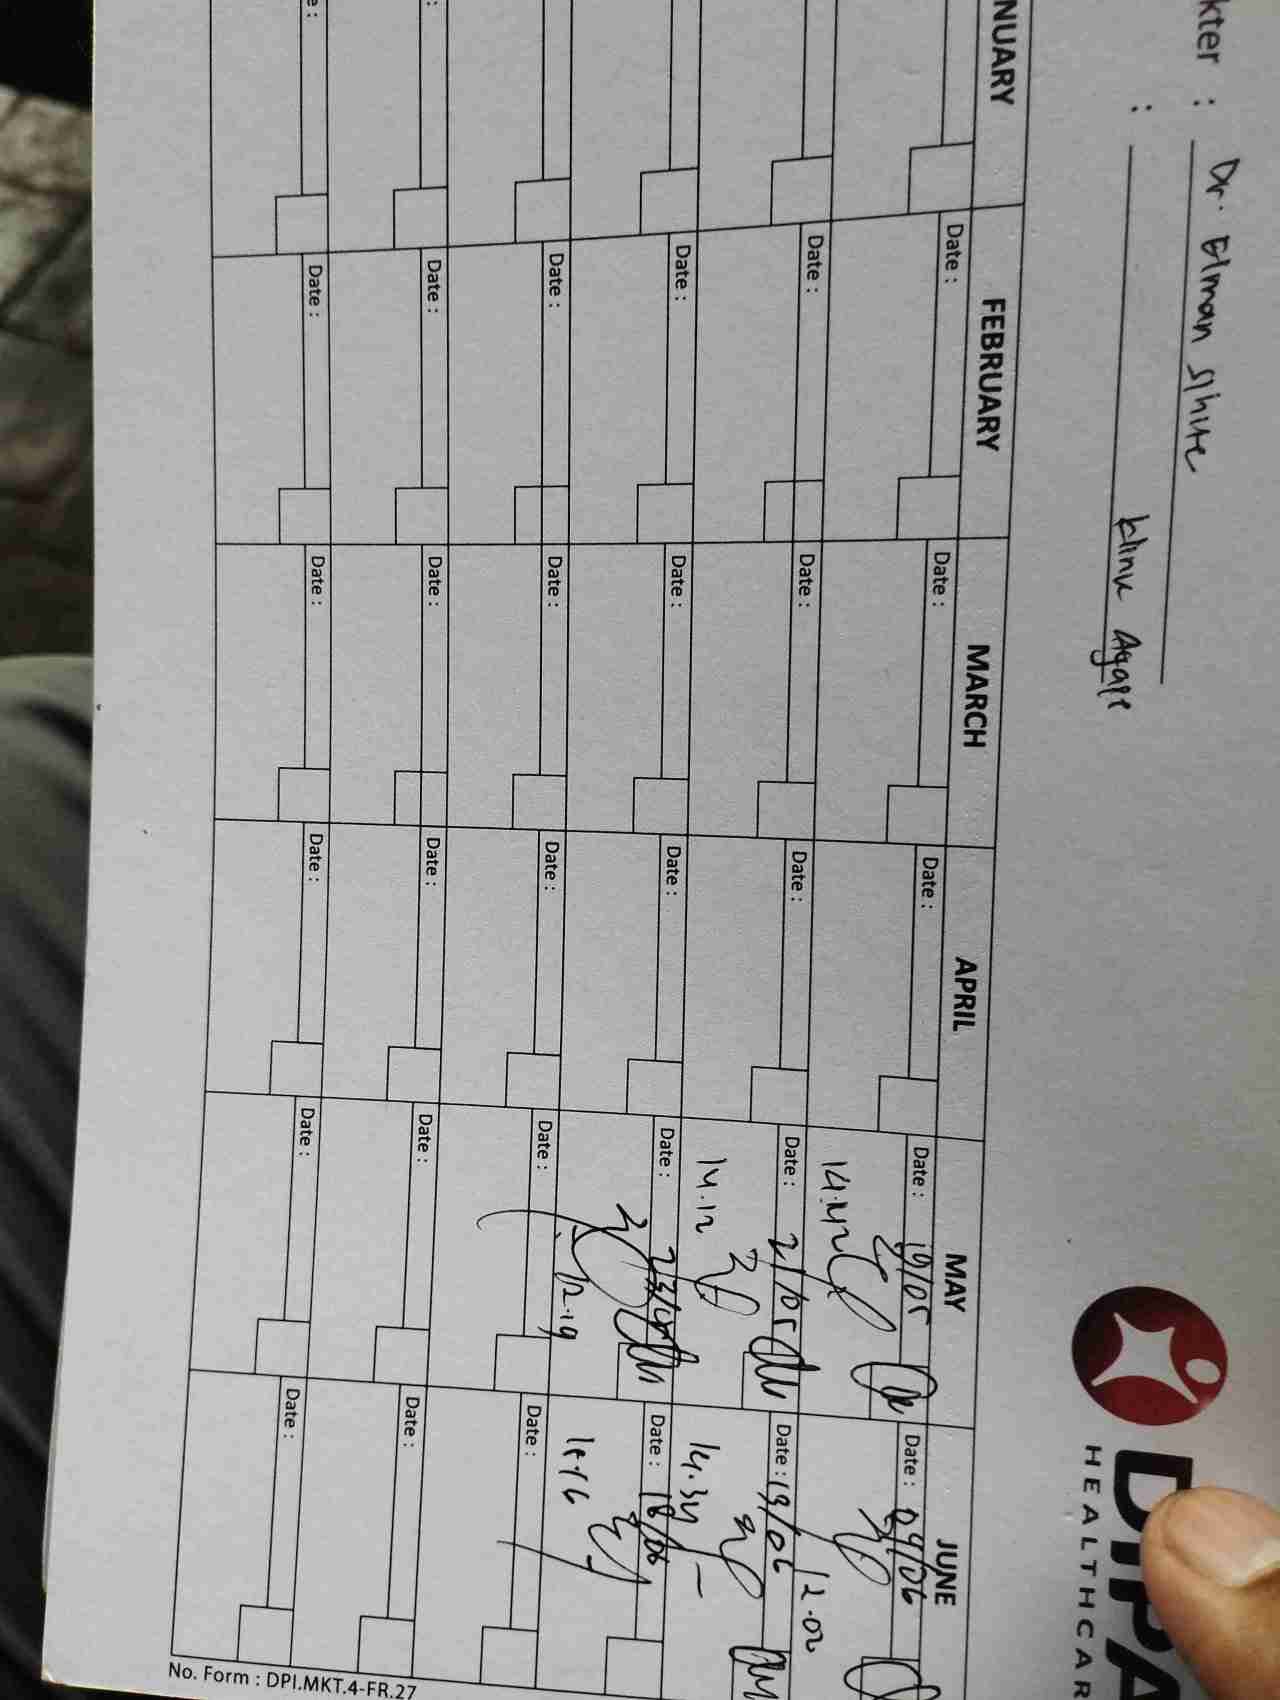 kter : Dr. Elman Sihite
: Klinik Agape
DIPA
HEALTHCAR
NUARY FEBRUARY MARCH APRIL MAY JUNE
Date : Date : Date : Date : 19/05 Date : 04/06
14.42 12.02
Date : Date : Date : Date : 21/05 Date : 13/06
14.12 14.34
Date : Date : Date : Date : 23/05 Date : 18/06
12.19
Date : Date : Date : Date : Date :
: Date : Date : Date : Date : Date :
e : Date : Date : Date : Date : Date :
No. Form : DPI.MKT.4-FR.27